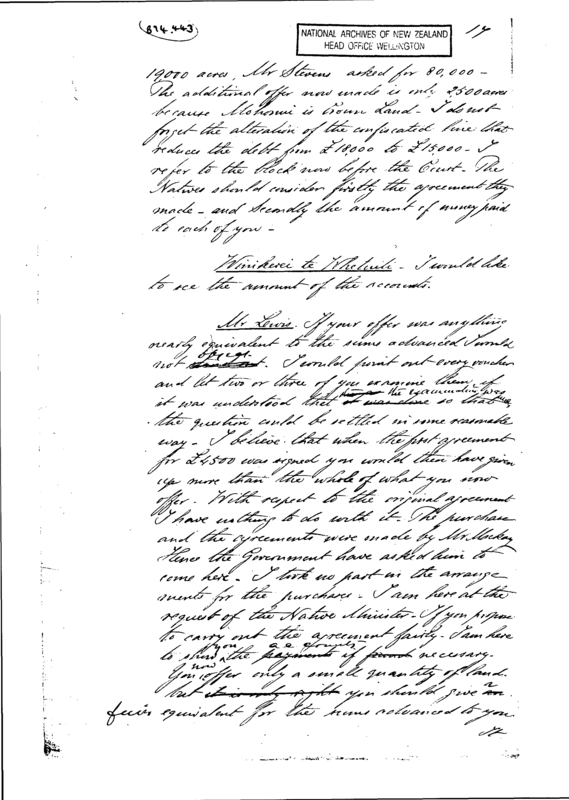 (874.443)
NATIONAL ARCHIVES OF NEW ZEALAND
HEAD OFFICE WELLINGTON
19,000 acres, Mr Stevens asked for 80,000 -
The additional offer now made is only 2500 acres
because Mohonui is Crown Land - I do not
forget the alteration of the confiscated line that
reduces the debt from £18,000 to £15000 - I
refer to the block now before the Court - The
Natives should consider firstly the agreement they
made - and secondly the amount of money paid
to each of you -
te - I would like
to see the amount of the accounts.
Mr Lewis. If your offer was anything
nearly equivalent to the sums advanced I would
not object. I would point out every voucher
and let two or three of you examine them if
it was understood that the examination was
it was done so that
the question could be settled in some reasonable
way - I believe that when the first agreement
for £4500 was signed you would then have given
up more than the whole of what you now
offer. With respect to the original agreement
I have nothing to do with it. The purchase
and the agreements were made by Mr. Mackay
Hence the Government have asked him to
come here - I took no part in the arrange
ments for the purchase - I am here at the
request of the Native Minister - If you propose
to carry out the agreement fairly - I am here
to show you the accounts if necessary.
You now offer only a small quantity of land.
but it is only right you should give a
fair equivalent for the sums advanced to you